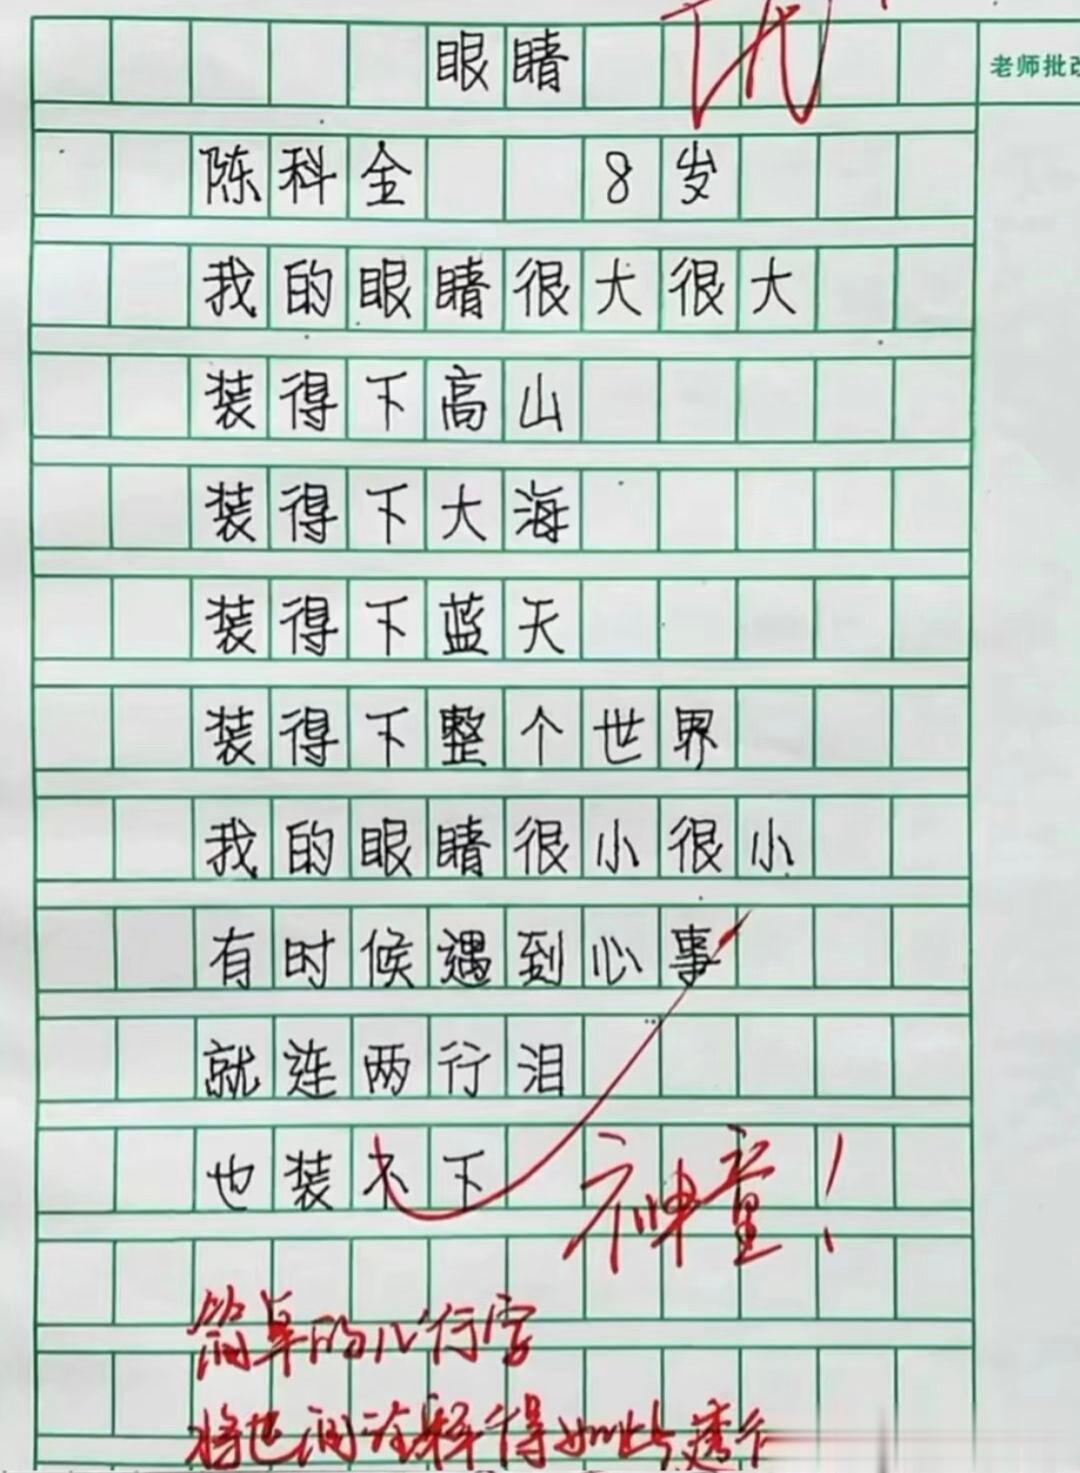 眼睛
老师批改
陈科全 8岁
我的眼睛很大很大
装得下高山
装得下大海
装得下蓝天
装得下整个世界
我的眼睛很小很小
有时候遇到心事
就连两行泪
也装不下
神童!
简单的几行字
将世间诠释得如此透彻